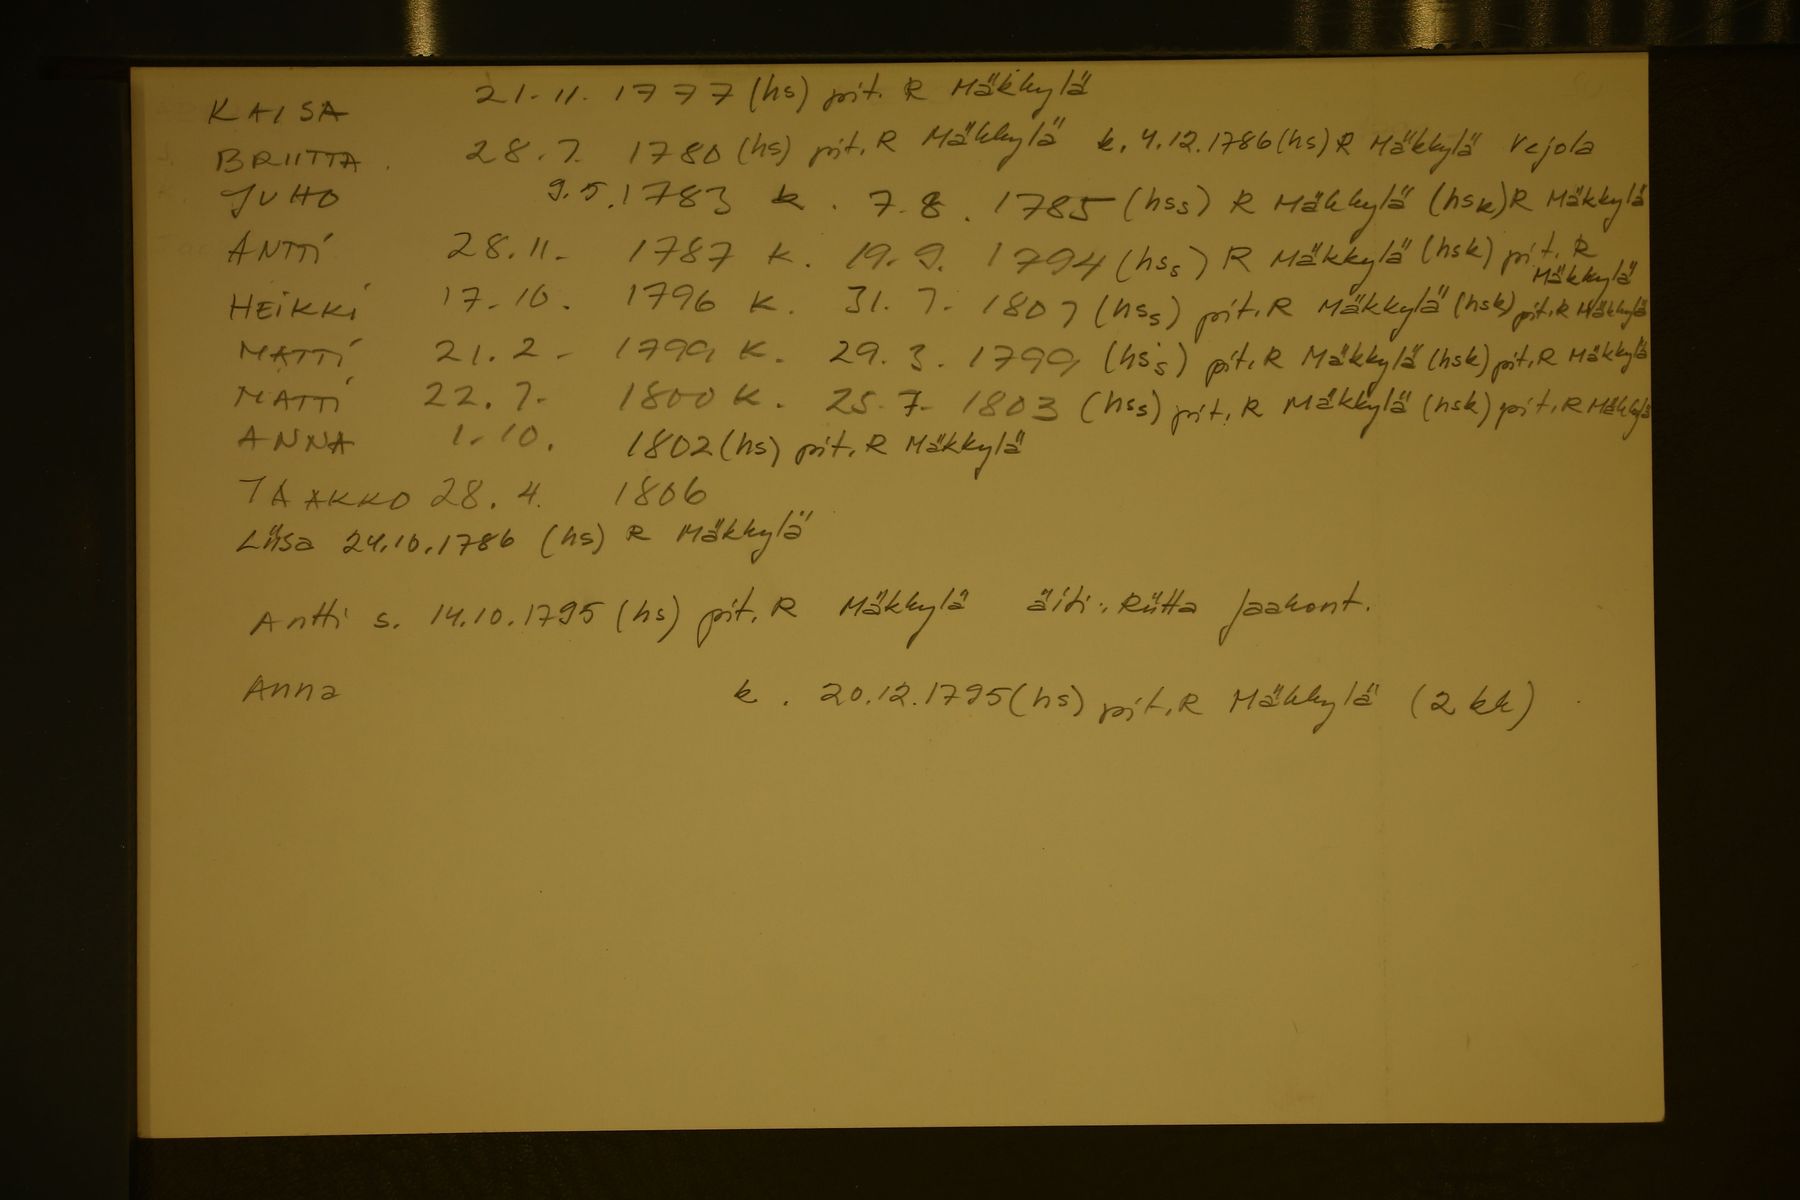 KAISA 21.11. 1777 (hs) pit. R Mäkkylä
BRIITTA. 28.7. 1780 (hs) pit. R Mäkkylä k. 4.12.1786 (hs) R Mäkkylä Vejola
JUHO 9.5.1783 k. 7.8.1785 (hss) R Mäkkylä (hsk) R Mäkkylä
ANTTI 28.11. 1787 k. 19.9. 1794 (hss) R Mäkkylä (hsk) pit. R Mäkkylä
HEIKKI 17.10. 1796 k. 31.7. 1807 (hss) pit. R Mäkkylä (hsk) pit. R Mäkkylä
MATTI 21.2. 1799 k. 29.3. 1799 (hss) pit. R Mäkkylä (hsk) pit. R Mäkkylä
MATTI 22.7. 1800 k. 25.7. 1803 (hss) pit. R Mäkkylä (hsk) pit. R Mäkkylä
ANNA 1.10. 1802 (hs) pit. R Mäkkylä
JAAKKO 28.4. 1806
Liisa 24.10.1786 (hs) R Mäkkylä
Antti s. 14.10.1795 (hs) pit. R Mäkkylä äiti: Riitta Jaakont.
Anna k. 20.12.1795 (hs) pit. R Mäkkylä (2 kk)